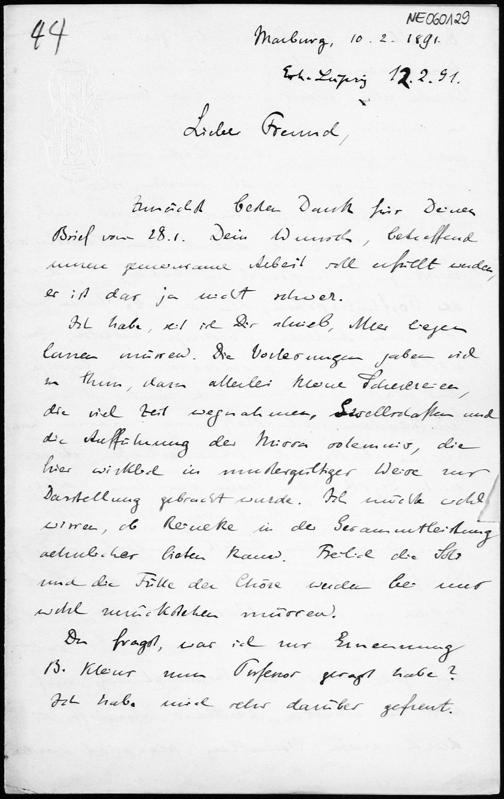 44
NE060129
Marburg, 10.2.1891.
Erh. Leipzig 12.2.91.
Lieber Freund,
Zunächst besten Dank für Deinen
Brief vom 28.1. Dein Wunsch, betreffend
unsere gemeinsame Arbeit soll erfüllt werden,
es ist das ja nicht schwer.
Ich habe, seit ich Dir schrieb, Alles liegen
lassen müssen. Die Vorlesungen gaben viel
zu thun, dazu allerlei kleine
die viel Zeit wegnahmen, Gesellschaften und
die Aufführung der Missa solemnis, die
hier wirklich in mustergültiger Weise zur
Darstellung gebracht wurde. Ich möchte wohl
wissen, ob Reineke in der Gesammtleistung
aehnliches bieten kann. Freilich die Soli
und die Fülle der Chöre werden bei uns
wohl zurückstehen müssen.
Du fragst, was ich zur Ernennung
B. Kleins zum Professor gesagt habe?
Ich habe mich sehr darüber gefreut.